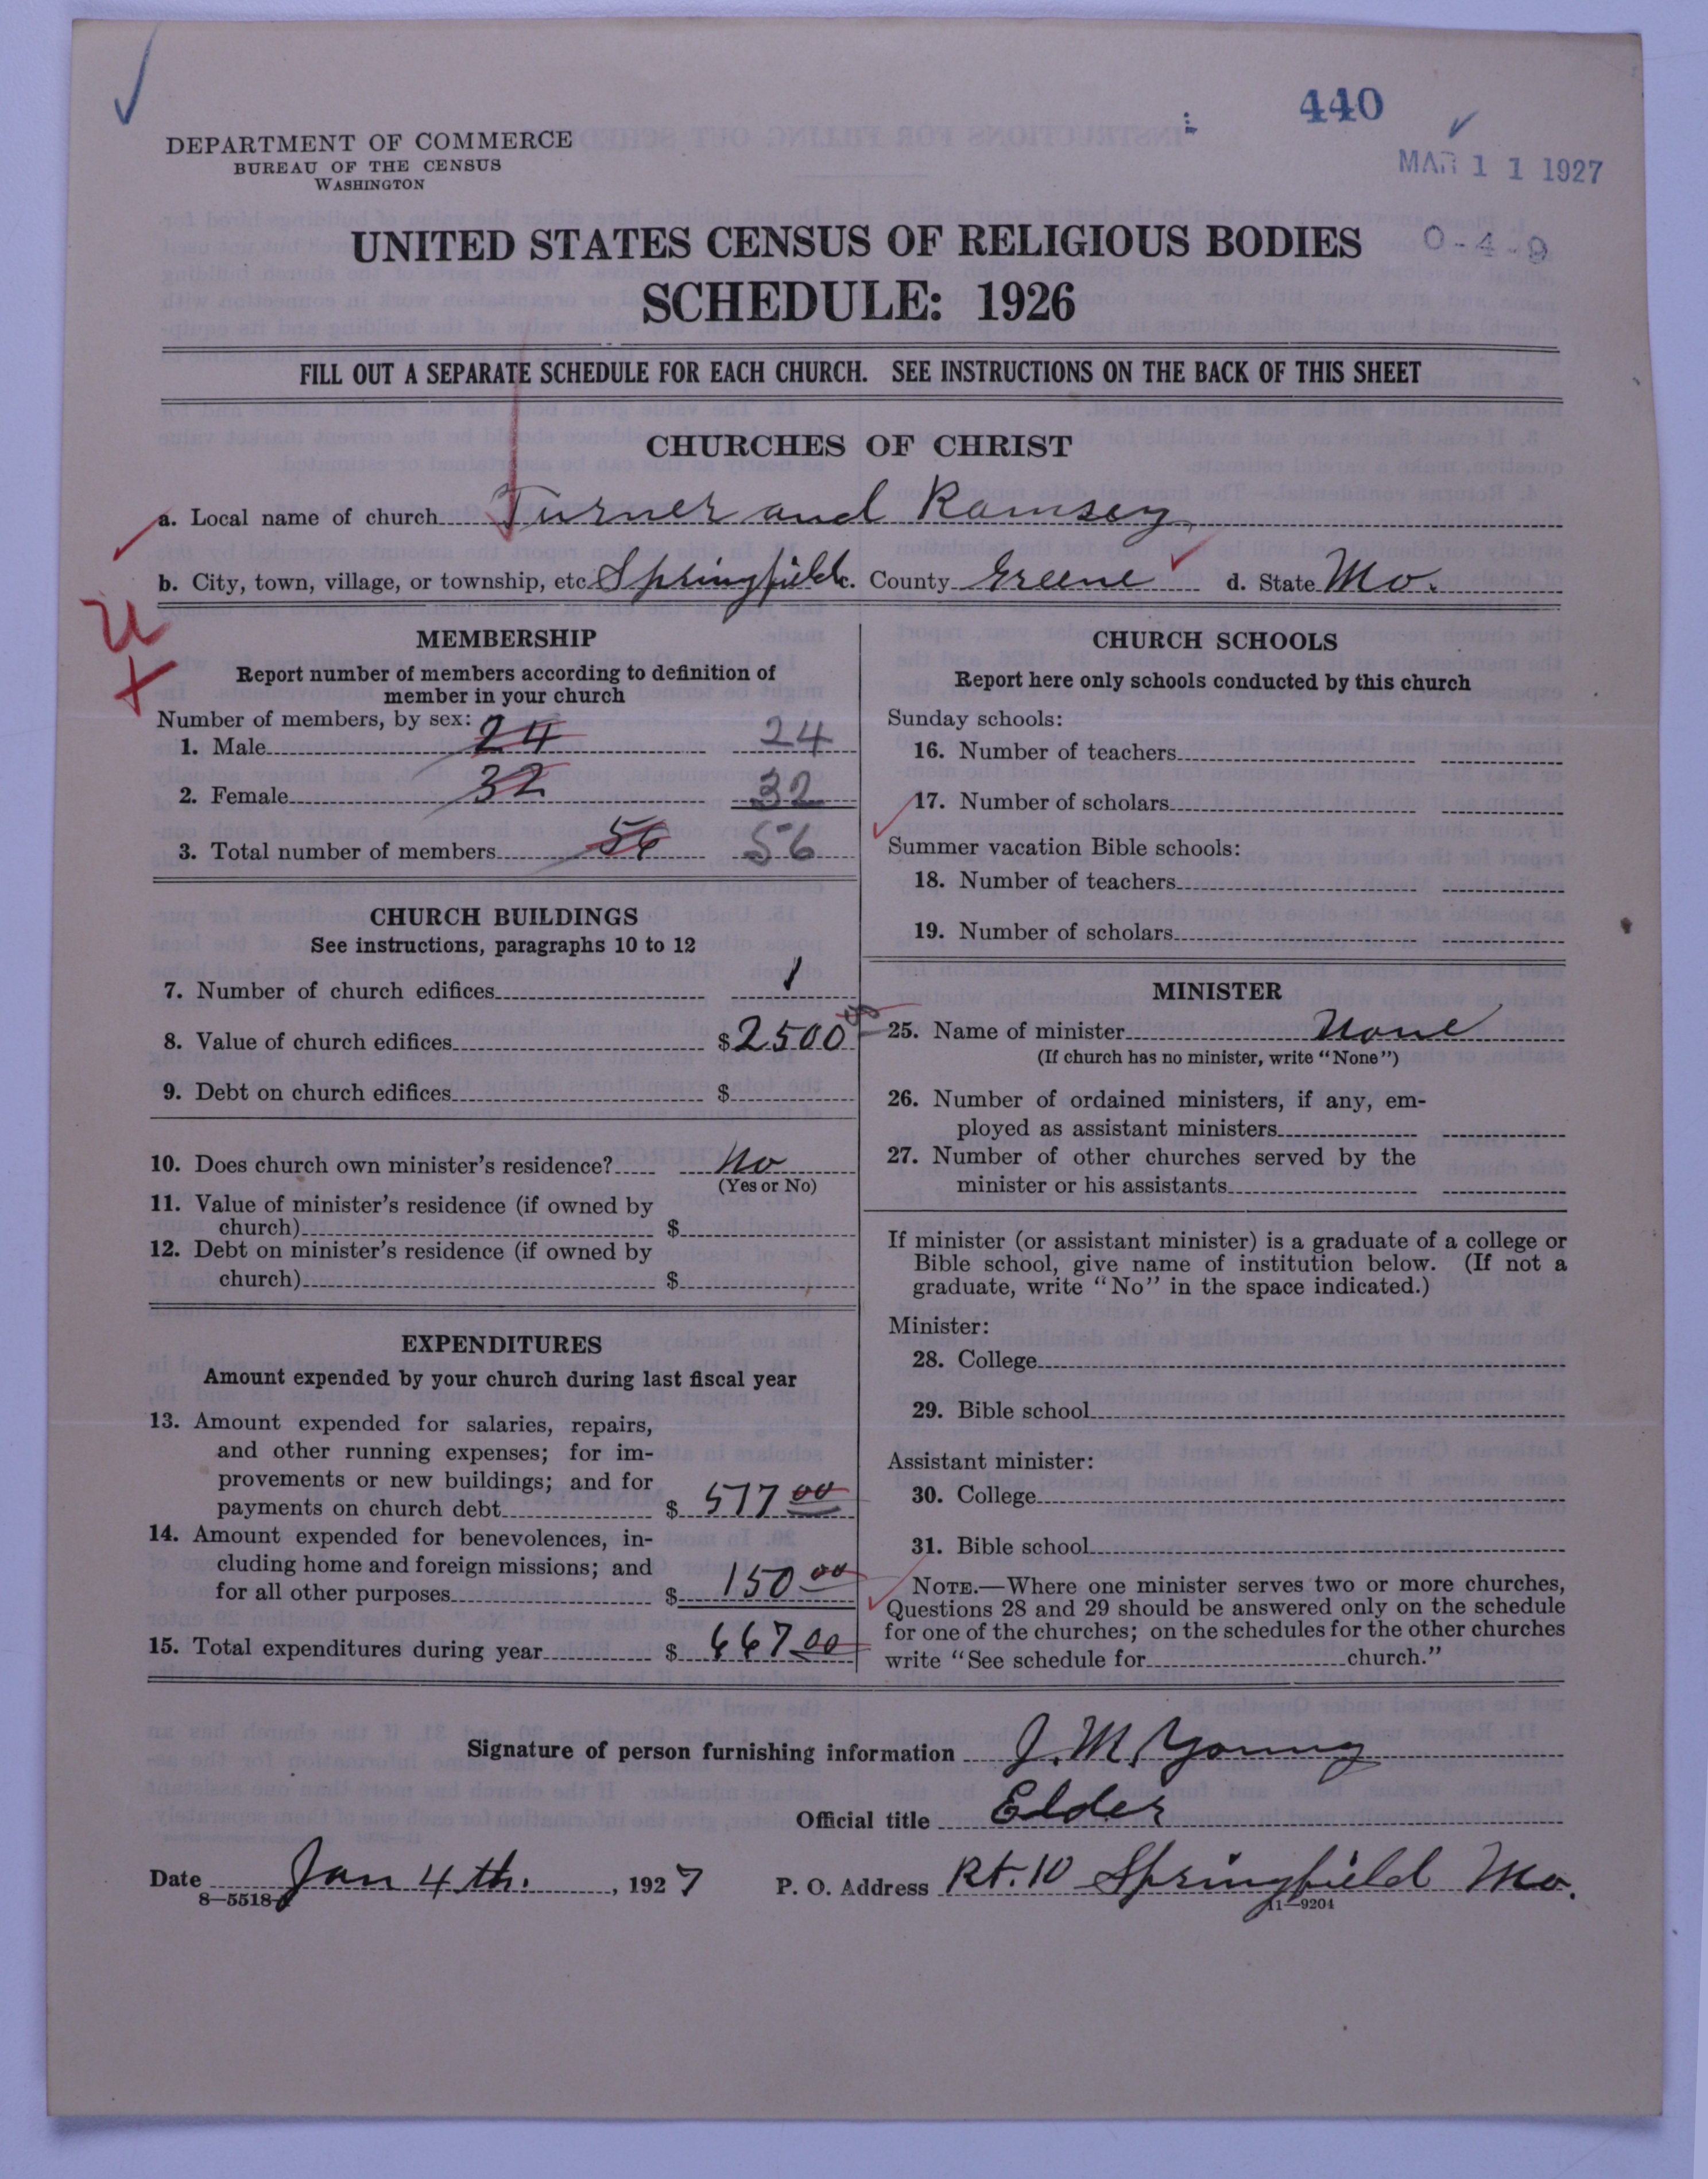 440
MAR 11 1927
DEPARTMENT OF COMMERCE
BUREAU OF THE CENSUS
WASHINGTON
UNITED STATES CENSUS OF RELIGIOUS BODIES
0-4-9
SCHEDULE: 1926
FILL OUT A SEPARATE SCHEDULE FOR EACH CHURCH. SEE INSTRUCTIONS ON THE BACK OF THIS SHEET
CHURCHES OF CHRIST
a. Local name of church Turner and Ramsey
b. City, town, village, or township, etc. Springfield c. County Greene d. State Mo.
U
MEMBERSHIP
Report number of members according to definition of
member in your church
Number of members, by sex:
1. Male 24 24
2. Female 32 32
3. Total number of members 56 56
CHURCH BUILDINGS
See instructions, paragraphs 10 to 12
7. Number of church edifices 1
8. Value of church edifices $2500 00
9. Debt on church edifices $
10. Does church own minister's residence? No
(Yes or No)
11. Value of minister's residence (if owned by
church) $
12. Debt on minister's residence (if owned by
church) $
EXPENDITURES
Amount expended by your church during last fiscal year
13. Amount expended for salaries, repairs,
and other running expenses; for im-
provements or new buildings; and for
payments on church debt $ 517 00
14. Amount expended for benevolences, in-
cluding home and foreign missions; and
for all other purposes $ 150 00
15. Total expenditures during year $ 667 00
CHURCH SCHOOLS
Report here only schools conducted by this church
Sunday schools:
16. Number of teachers
17. Number of scholars
Summer vacation Bible schools:
18. Number of teachers
19. Number of scholars
MINISTER
25. Name of minister None
(If church has no minister, write "None")
26. Number of ordained ministers, if any, em-
ployed as assistant ministers
27. Number of other churches served by the
minister or his assistants
If minister (or assistant minister) is a graduate of a college or
Bible school, give name of institution below. (If not a
graduate, write "No" in the space indicated.)
Minister:
28. College
29. Bible school
Assistant minister:
30. College
31. Bible school
NOTE.—Where one minister serves two or more churches,
Questions 28 and 29 should be answered only on the schedule
for one of the churches; on the schedules for the other churches
write "See schedule for church."
Signature of person furnishing information J. M. Young
Official title Elder
Date Jan 4 th. , 1927 P. O. Address Rt. 10 Springfield Mo.
8—5518 11—9204